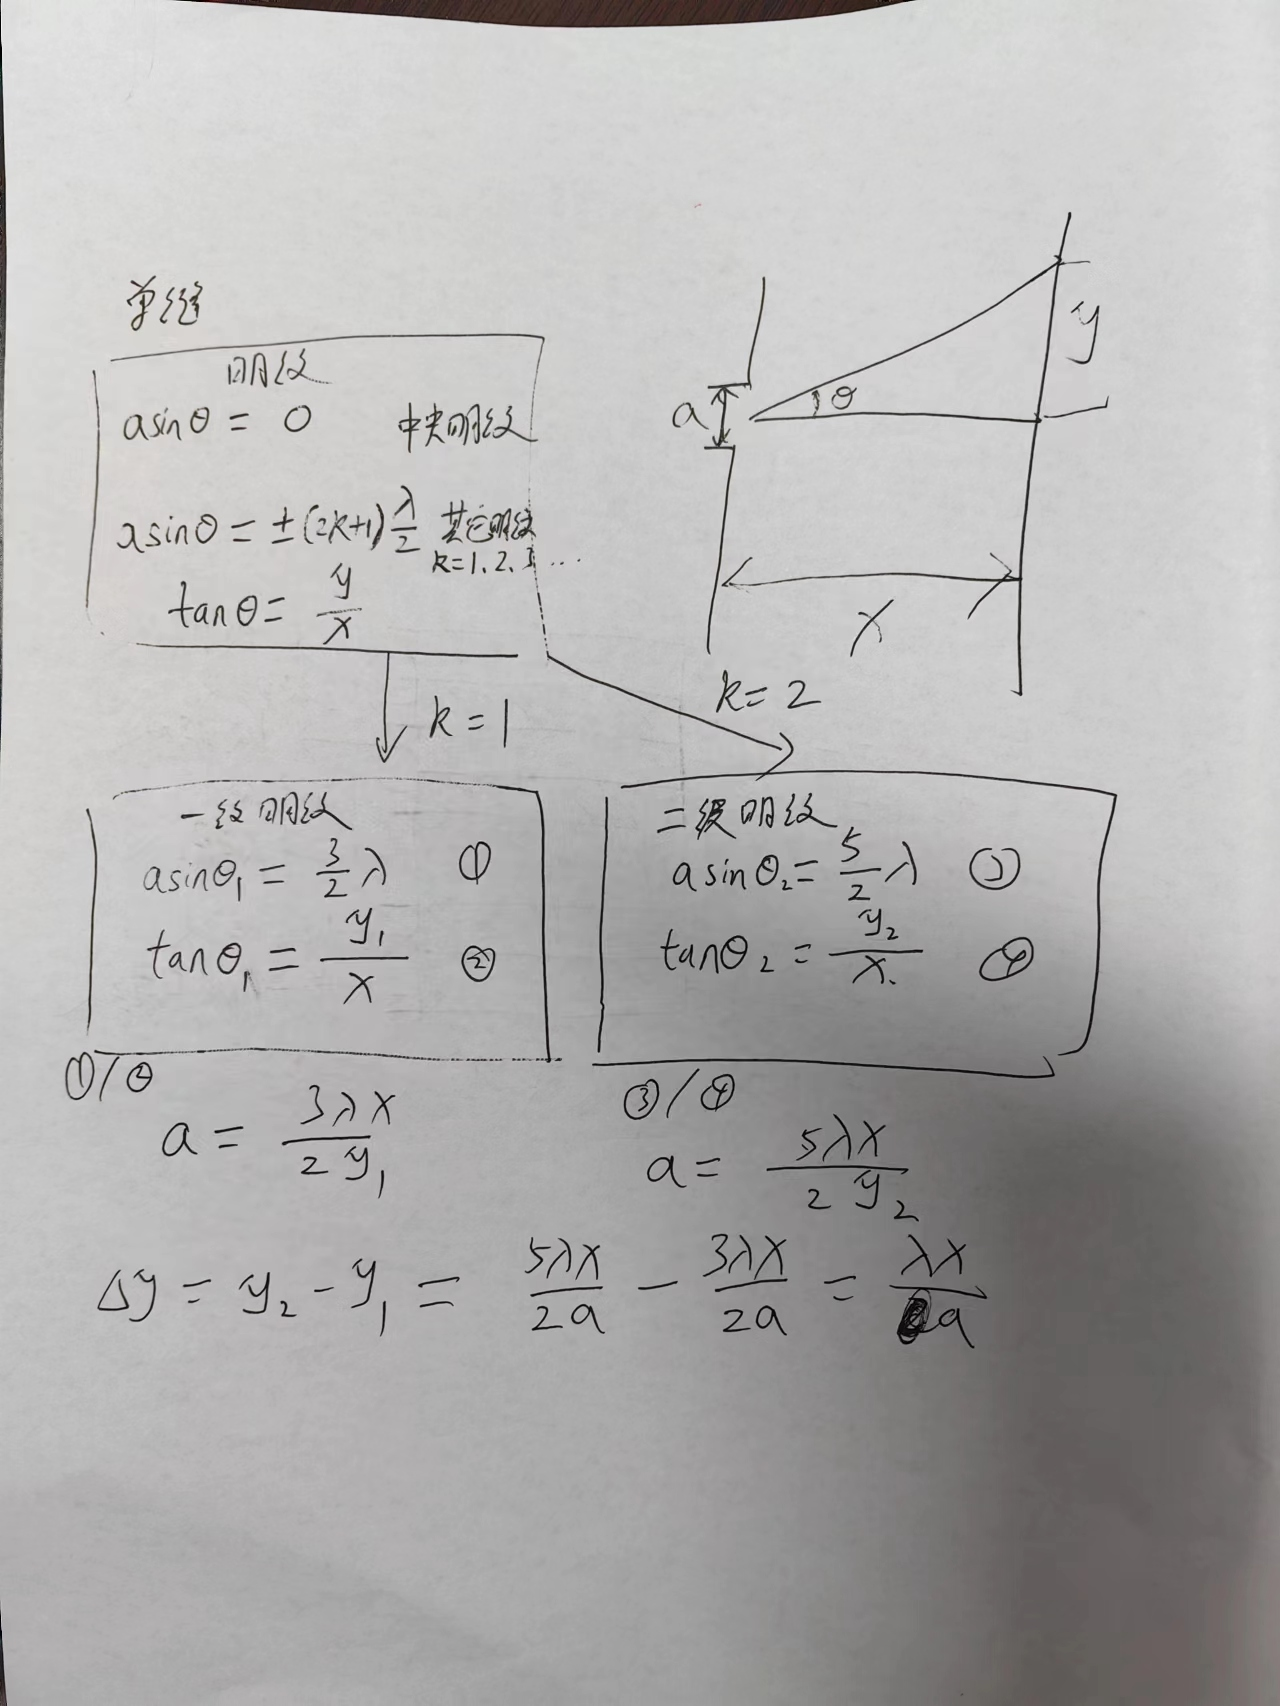 单缝
明纹
asinθ = 0 中央明纹
asinθ = ±(2k+1) λ/2 其它明纹
k=1、2、3 …
tanθ = y/x
a
θ
y
x
k=1
k=2
一级明纹
asinθ₁ = 3/2 λ ①
tanθ₁ = y₁/x ②
二级明纹
asinθ₂ = 5/2 λ ③
tanθ₂ = y₂/x. ④
①/②
a = 3λx/2y₁
③/④
a = 5λx/2y₂
Δy = y₂ - y₁ = 5λx/2a - 3λx/2a = λx/a